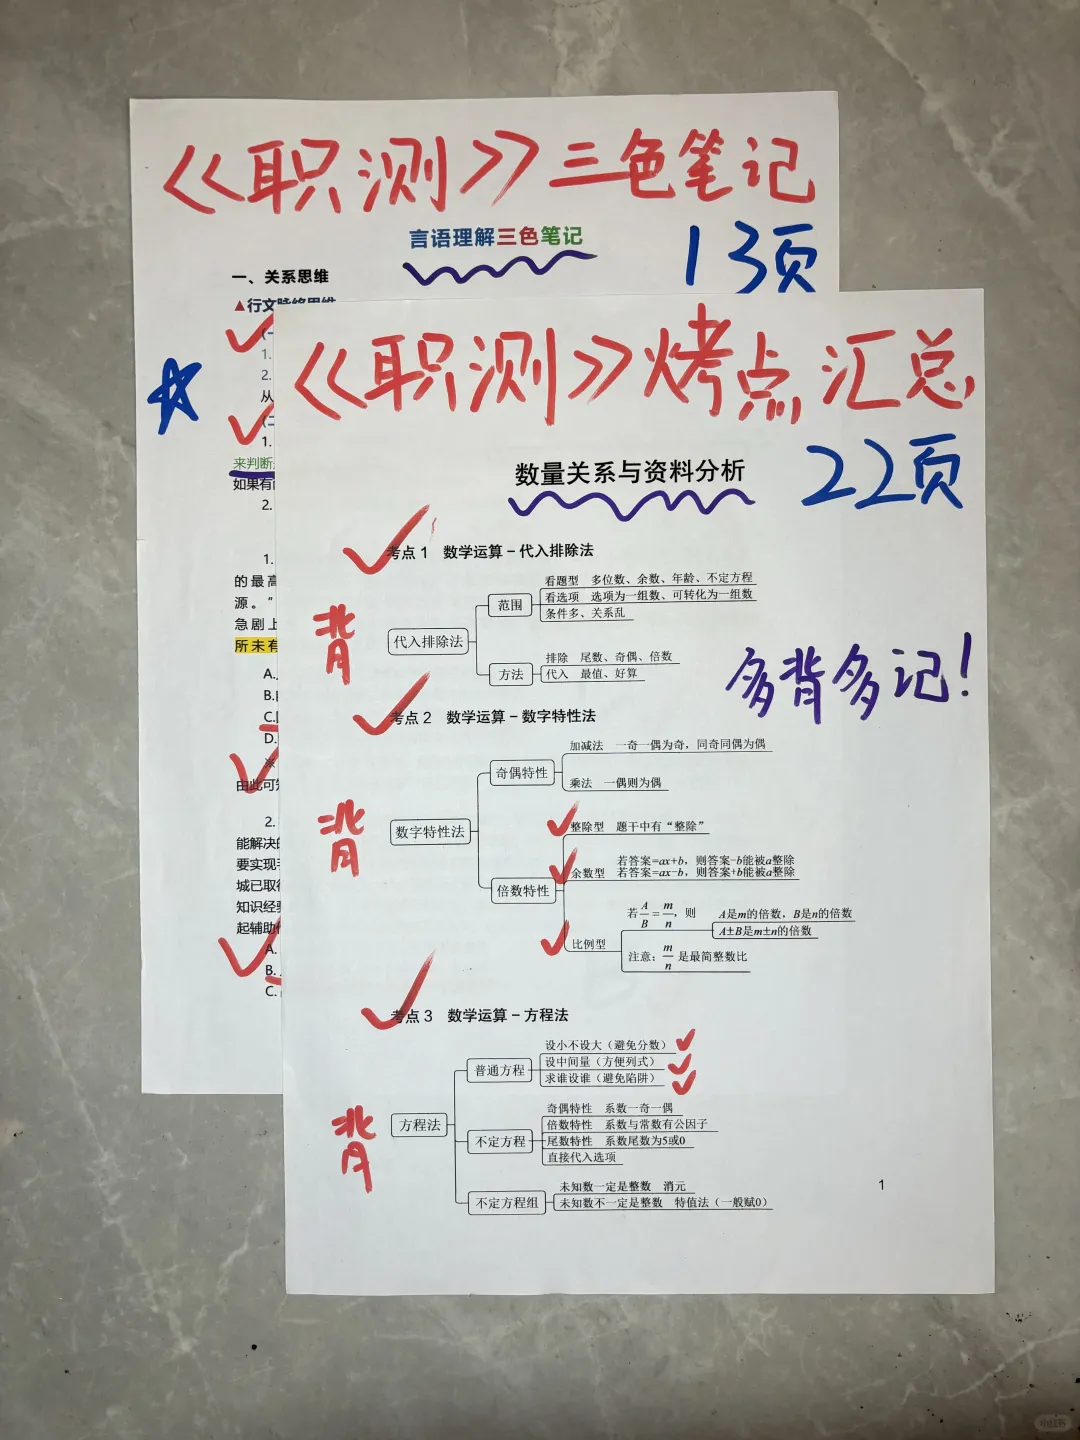 《职测》三色笔记
言语理解三色笔记
13页
一、关系思维
▲行文脉络思维
(一
1.
2.
从
(二
1.
来判断
如果有
2.
1.
的最高
源。"
急剧上
所未有
A.
B.
C.
D.
※
由此可知
2.
能解决的
要实现
城已取得
知识经验
起辅助作
A.
B.
C.
《职测》烤点汇总
22页
数量关系与资料分析
考点1 数学运算－代入排除法
背
代入排除法
范围
看题型 多位数、余数、年龄、不定方程
看选项 选项为一组数、可转化为一组数
条件多、关系乱
方法
排除 尾数、奇偶、倍数
代入 最值、好算
多背多记!
考点2 数学运算－数字特性法
背
数字特性法
奇偶特性
加减法 一奇一偶为奇，同奇同偶为偶
乘法 一偶则为偶
倍数特性
整除型 题干中有“整除”
余数型
若答案=ax+b，则答案-b能被a整除
若答案=ax-b，则答案+b能被a整除
比例型
若A/B=m/n，则
A是m的倍数，B是n的倍数
A±B是m±n的倍数
注意：m/n是最简整数比
考点3 数学运算－方程法
背
方程法
普通方程
设小不设大（避免分数）
设中间量（方便列式）
求谁设谁（避免陷阱）
不定方程
奇偶特性 系数一奇一偶
倍数特性 系数与常数有公因子
尾数特性 系数尾数为5或0
直接代入选项
不定方程组
未知数一定是整数 消元
未知数不一定是整数 特值法（一般赋0）
1
小红书